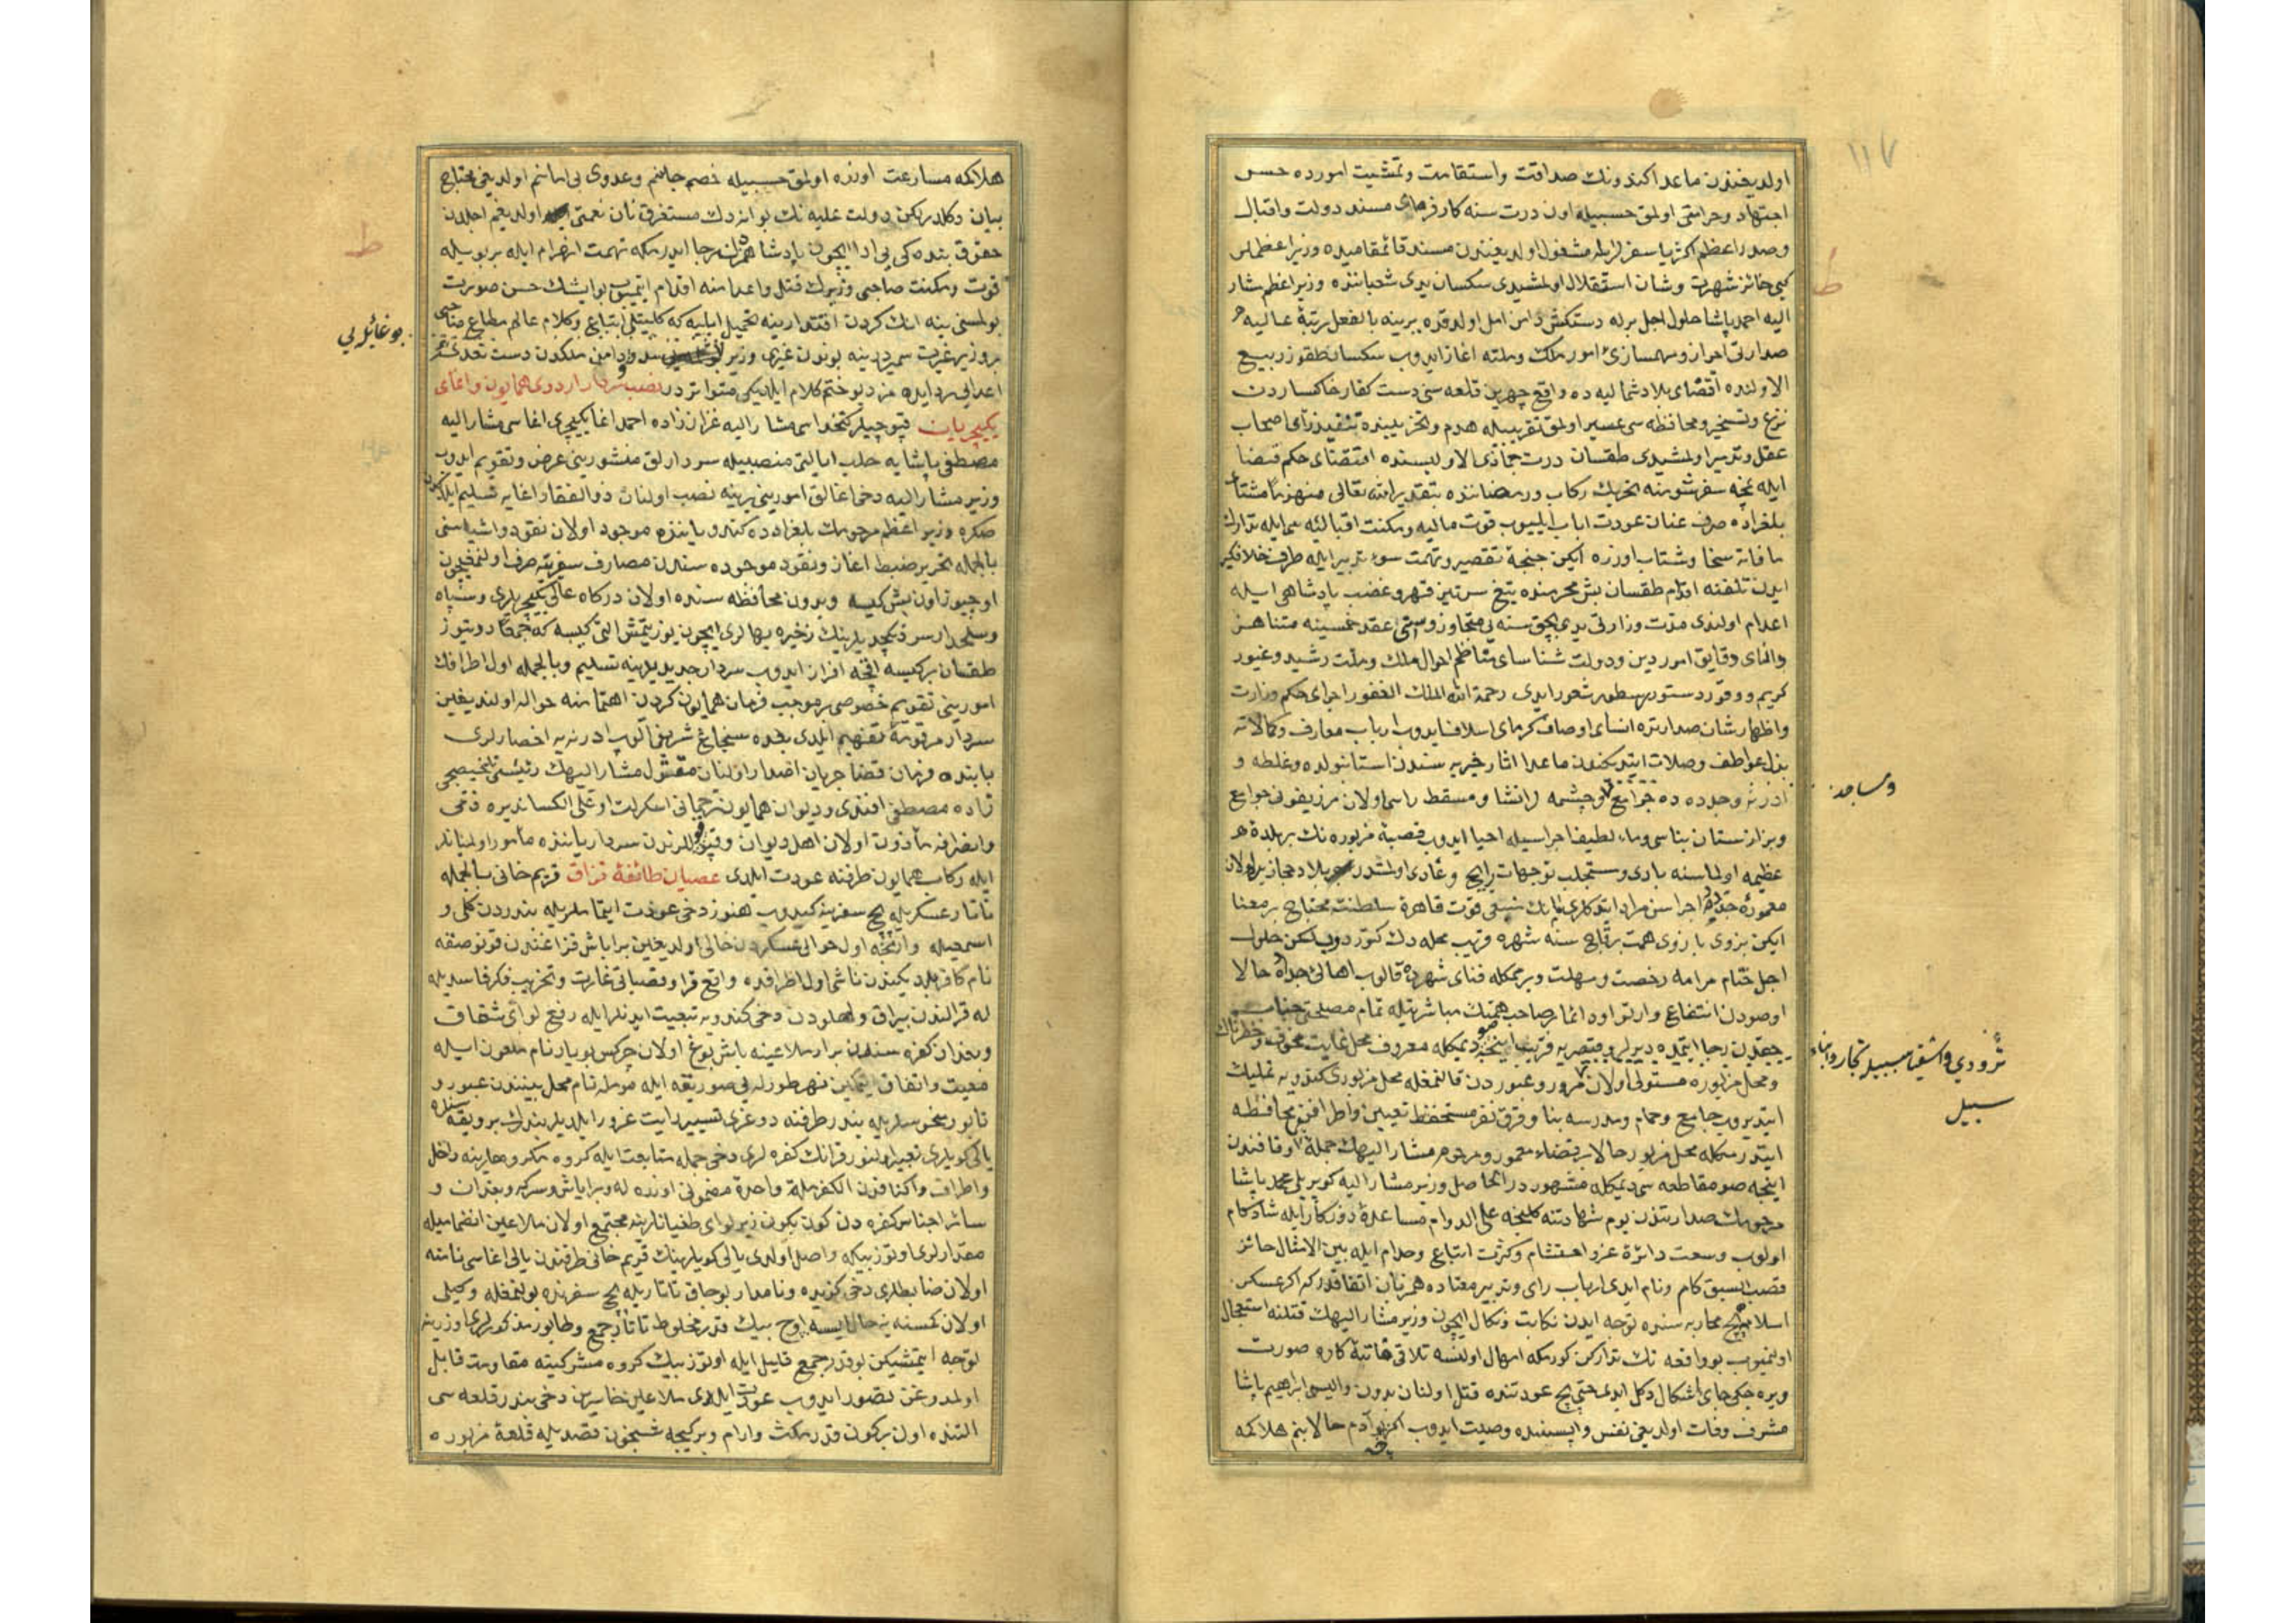 ١١٧
اولديغندن ماعدا كندونك صداقت واستقامت وتمشيت امورده حسن
اجتهاد وحراستى اولمق حسبيله اون درت سنه كارفرماى مسند دولت واقبال
وصدراعظم اكثريا سفرلر ايله مشغول اولديغندن مسند قائمقاميده وزيراعظملر
كبى حائز شهرت وشان استقلال اولمشيدى سكسان يدى شعباننده وزيراعظم مشار
اليه احمد پاشا حلول اجل برله دستكش دامن امل اولدقده يرينه بالفعل رتبۀ عاليه
صدارتى احراز وسمسازئ امور ملك وملته اغاز ايدوب سكسان طقوز ربيع
الاولنده اقصاى بلاد شماليه ده واقع چهرين قلعه سنى دست كفار خاكساردن
نزع وتسخير ومحافظه سى عسير اولمق تقريبيله هدم وتخريبنده تنفيذ رأى اصحاب
عقل وتدبير اولمشيدى طقسان درت جماذى الاوليسنده اقتضاى حكم قضا
ايله بچه سفر شومنه تحريك ركاب ورمضاننده بتقدير الله تعالى منهزمًا مشتاى
بلغراده صرف عنان عودت اياب ايليوب قوت ماليه ومكنت اقباليه سيله تدارك
مافاته سخا وشتاب اوزره ايكن جنحۀ تقصير وتهمت سوء تدبير ايله طرف خلافكير
ايدن تلفنه اقدام طقسان بش محرمنده تيغ سرتيز قهر وغضب پادشاهى ايله
اعدام اولندى مدت وزارتى يدى بچق سنه يى متجاوز وسنى عقد خمسينه متناهـ
داناى دقايق امور دين ودولت شناساى مناظم احوال ملك وملت رشيد وغيور
كريم ووقور دستور سطور شعور ايدى رحمة الله الملك الغفور اجراى حكم وزارت
واظهار شان صدارتده انساى اوصاف كرماى اسلاف ايدوب ارباب معارف وكمالاته
بذل عواطف وصلات ايتديكندن ماعدا اثار خيريه سندن استانبولده وغلطه و
ادرنه وجده ده جوامع وچشمه لر انشا ومسقط راسى اولان مرزيفونى جوامع
وبزازستان بناسى وماء لطيف اجراسيله احيا ايدوب قصبۀ مزبوره نك بر بلدۀ
عظيمه اولماسنه بادى ومستجلب توجهات رايح وغادى اولمشدر بلاد حجازيه اولان
معمورۀ جده يه اجراسن مراد ايتدكلرى پاك شيئى قوت قاهرۀ سلطنته محتاج بر معنا
ايكن بزوى بازوى همت برقاچ سنه شهره قريب محله دك كتوردوب لكن حلول
اجل ختام مرامه رخصت ومهلت ويرممكله فناى شهرده قالوب اهالئ جده حالا
اوصودن انتفاع وارتوا وه اتمام صاحب همتك مباشرتيله تمام مصلحتى جناب
حقدن رجا ايتمده ديرلر وقيصريه قربنده اينجه صو ديمكله معروف محل غايت مخوف وخطرناك
ومحل مزبوره مستولى اولان مرور وعبوردن قالمغله محل مزبورى كندويه تمليك
ايتديروب جامع وحمام ومدرسه بنا وقرق نفر مستحفظ تعيين واطرافنى محافظه
ايتدرمكله محل مزبور حالا بر قضاء معمور ومرحوم مشار اليهك جملۀ اوقافندن
اينجه صو مقاطعه سى ديمكله مشهوردر الحاصل وزير مشار اليه كوپريلى محمد پاشا
مرحومك صدارتندن يوم شهادتنه كلنجه على الدوام مساعدۀ دوركار ايله شادكام
اولوب وسعت دائرۀ عز واحتشام وكثرت اتباع وخدام ايله بين الامثال حائز
قصب السبق كام ونام ايدى ارباب راى وتدبير معناده همزبان اتفاقدر كه اكر عسكر
اسلامه بچ محاربه سنده توجه ايدن نكابت ونكال ايچون وزير مشار اليهك قتلنه استعجال
اولنميوب بو واقعه نك تداركن كورمكه امهال اولنسه تلافئ فائتۀ كاره صورت
ويره جكى جاى اشكال دكل ايدى حتى بچ عودتنده قتل اولنان بدون واليسى ابراهيم پاشا
مشرف وفات اولديغى نفس واپسينده وصيت ايدوب اكر بو آدم حالا بنم هلاكمه
ومساجد
تزودى واشقيا سببيله تجار وابناء
سبيل
هلاكمه مسارعت اوزره اولمق حسبيله خصم جانم وعدوى بى امانم اولديغى محتاج
بيان دكلدر لكن دولت عليه نك بو انه دك مستغرق نان نعمتى اولديغم اجلدن
حقوق بنده كى يى ادا ايچون پادشاهمدن رجا ايدرمكه تهمت انهزام ايله بر بويله
قوت ومكنت صاحبى وزيرك قتل واعدامنه اقدام ايتميوب بو ايشك حسن صورت
بولمسنى ينه انك كردن اقتدارينه تحميل ايليه كه كليتلى اتباع وكلام عالم مطاع صاحبى
بر وزير غيرت سميردر ينه بوندن غيرى وزير سد ودامن ملكدن دست تعدئ
اعدايى رد ايده مز ديو ختم كلام ايلديكى متواتردر نصب سردار اردوى همايون واغاى
يكيچريان قپوجيلر كتخداسى مشار اليه غزاززاده احمد اغا يكيچرى اغاسى مشار اليه
مصطفى پاشايه حلب ايالتى منصبيله سردارلق منشورينى عرض وتقويم ايدوب
وزير مشار اليه دخى اغالق امورينى يرينه نصب اولنان ذوالفقار اغايه تسليم ايلدكدن
صكره وزير اعظم مرحومك بلغرادده كندو ياننده موجود اولان نقود واشياسنى
بالجمله تحرير ضبط اغاز ونقود موجوده سندن مصارف سفريه يه صرف اولنمغيچون
اوچيوز اون بش كيسه وبدون محافظه سنده اولان دركاه عالى يكيچريلرى وسپاه
وسلحدار سردنكچديلرينك ذخيره بهالرى ايچون يوز يتمش التى كيسه كه جمعًا دويوز
طقسان بر كيسه اقچه افراز ايدوب سردار جديد يدينه تسليم وبالجمله اول اطرافك
امورينى تقويم خصوصى بر موجب فرمان همايون كردن اهتمامنه حواله اولنديغين
سردار مرقومه تفهيم ايلدى بعده سنجاغ شريفى الوب ادرنه يه احضارلرى
بابنده فرمان قضا جريان اصدار اولنان مقتول مشار اليهك رئيسى تلخيصجى
زاده مصطفى افندى وديوان همايون ترجمانى اسكرلت اوغلى الكساندره ذمى
وانصرافه مأذون اولان اهل ديوان وقپو قوللرندن سردار ياننده مأمور اولميانلر
ايله ركاب همايون طرفنه عودت ايلدى عصيان طائفۀ قزاق قريم خانى بالجمله
تاتار عسكريله بچ سفرينه كيدوب هنوز دخى عودت ايتمامله بندردن كلى و
اسمعيله وارنجه اول حوالى عسكردن خالى اولديغين براباش قزاغندن قونوصقه
نام كافر بلديكندن ناشى اول اطرافده واقع قرا وقصباتى غارت وتخريب فكر فاسديله
له قرالندن بيراق ولهلودن دخى كندويه تبعيت ايدنلر ايله رفع لواى شقاق
وبغدان كفره سندن برار ملاعينه باش بوغ اولان چركس بويار نام ملعون ايله
معيت واتفاق ايتمكين نهر طورله يى صوريقه ايله مومله نام محل بيننده عبور و
تابور منحوسلريله بندر طرفنه دوغرى تسيير رايت غرور ايلديلر بندرك بر ويقه سنده
يالى كويلرى تعبير اولنور قرانك كفره لرى دخى جمله متابعت ايله كروه مكروهلرينه داخل
واطراف واكنافدن الكفر ملة واحدة مضمونى اوزره له وبراباش وسركه وبغدان و
سائر اجناس كفره دن كون بكون زير لواى طغيانلرينه مجتمع اولان ملاعين انضماميله
مقدارلرى اوتوز بيكه واصل اولدى يالى كويلرينك قريم خانى طرفندن يالى اغاسى نامنه
اولان ضابطلرى دخى كزيده ونامدار بوجاق تاتاريله بچ سفرنده بولنمغله وكيلى
اولان كمسنه نه حال ايسه اوچ بيك قدر مخلوط تاتار جمع وطابور مذكورلرى اوزرينه
توجه ايتمشيكن بو قدر جمع قليل ايله اوتوز بيك كروه مشركينه مقاومت قابل
اولمدوغن تصور ايدوب عودت ايلدى ملاعين خاسرين دخى بندر قلعه سى
التنده اون بركون قدر مكث وارام وبر كيجه شبخون قصديله قلعۀ مزبوره
بو غائله يى